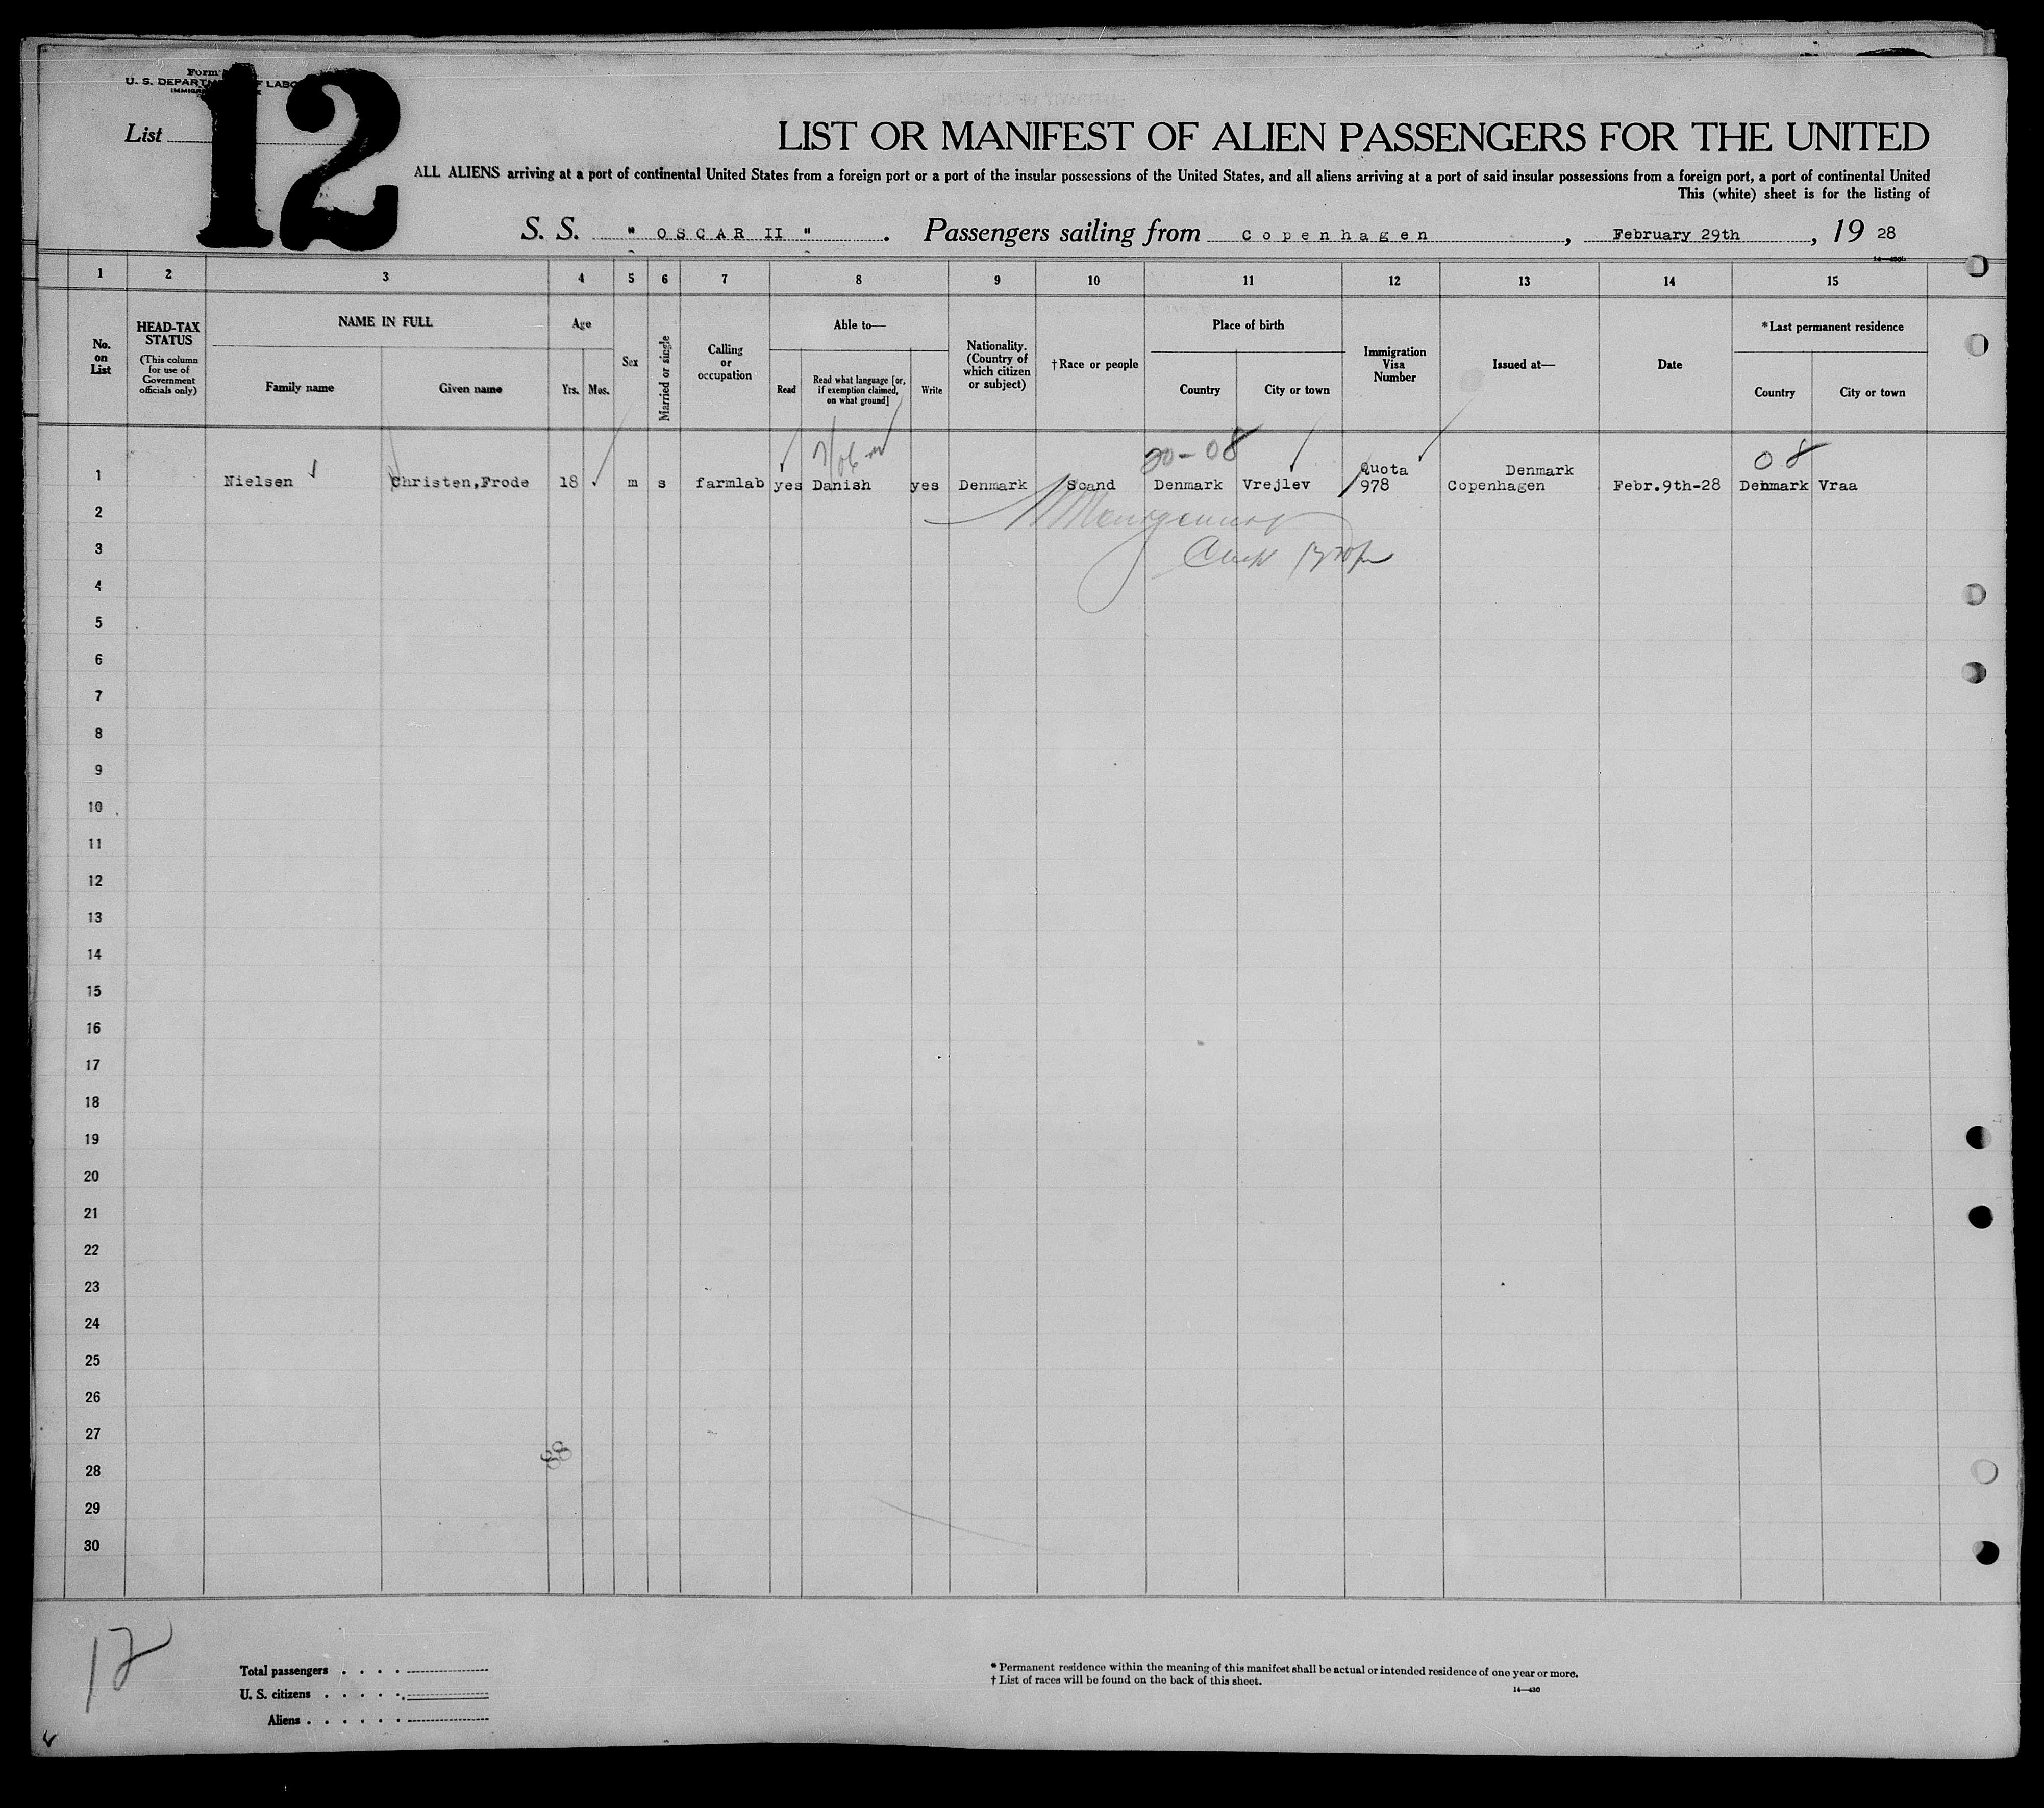 Form
U. S. DEPARTM F LABO
IMMIG
List
12
LIST OR MANIFEST OF ALIEN PASSENGERS FOR THE UNITED
ALL ALIENS arriving at a port of continental United States from a foreign port or a port of the insular possessions of the United States, and all aliens arriving at a port of said insular possessions from a foreign port, a port of continental United
This (white) sheet is for the listing of
S. S. " OSCAR II " . Passengers sailing from Copenhagen , February 29th , 19 28
1 2 3 4 5 6 7 8 9 10 11 12 13 14 15
No. on List
HEAD-TAX STATUS
(This column for use of Government officials only)
NAME IN FULL
Family name
Given name
Age
Yrs.
Mos.
Sex
Married or single
Calling or occupation
Able to—
Read
Read what language [or, if exemption claimed, on what ground]
Write
Nationality. (Country of which citizen or subject)
†Race or people
Place of birth
Country
City or town
Immigration Visa Number
Issued at—
Date
*Last permanent residence
Country
City or town
20-08
08
Quota Denmark
1 Nielsen Christen,Frode 18 m s farmlab yes Danish yes Denmark Scand Denmark Vrejlev 978 Copenhagen Febr.9th-28 Denmark Vraa
2
3
4
5
6
7
8
9
10
11
12
13
14
15
16
17
18
19
20
21
22
23
24
25
26
27
88
28
29
30
12
Total passengers . . . .
U. S. citizens . . . . . .
Aliens . . . . . .
* Permanent residence within the meaning of this manifest shall be actual or intended residence of one year or more.
† List of races will be found on the back of this sheet.
14—430